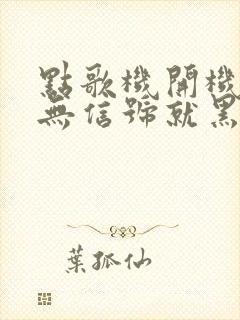 點歌機開機
無信號就黑
葉孤仙